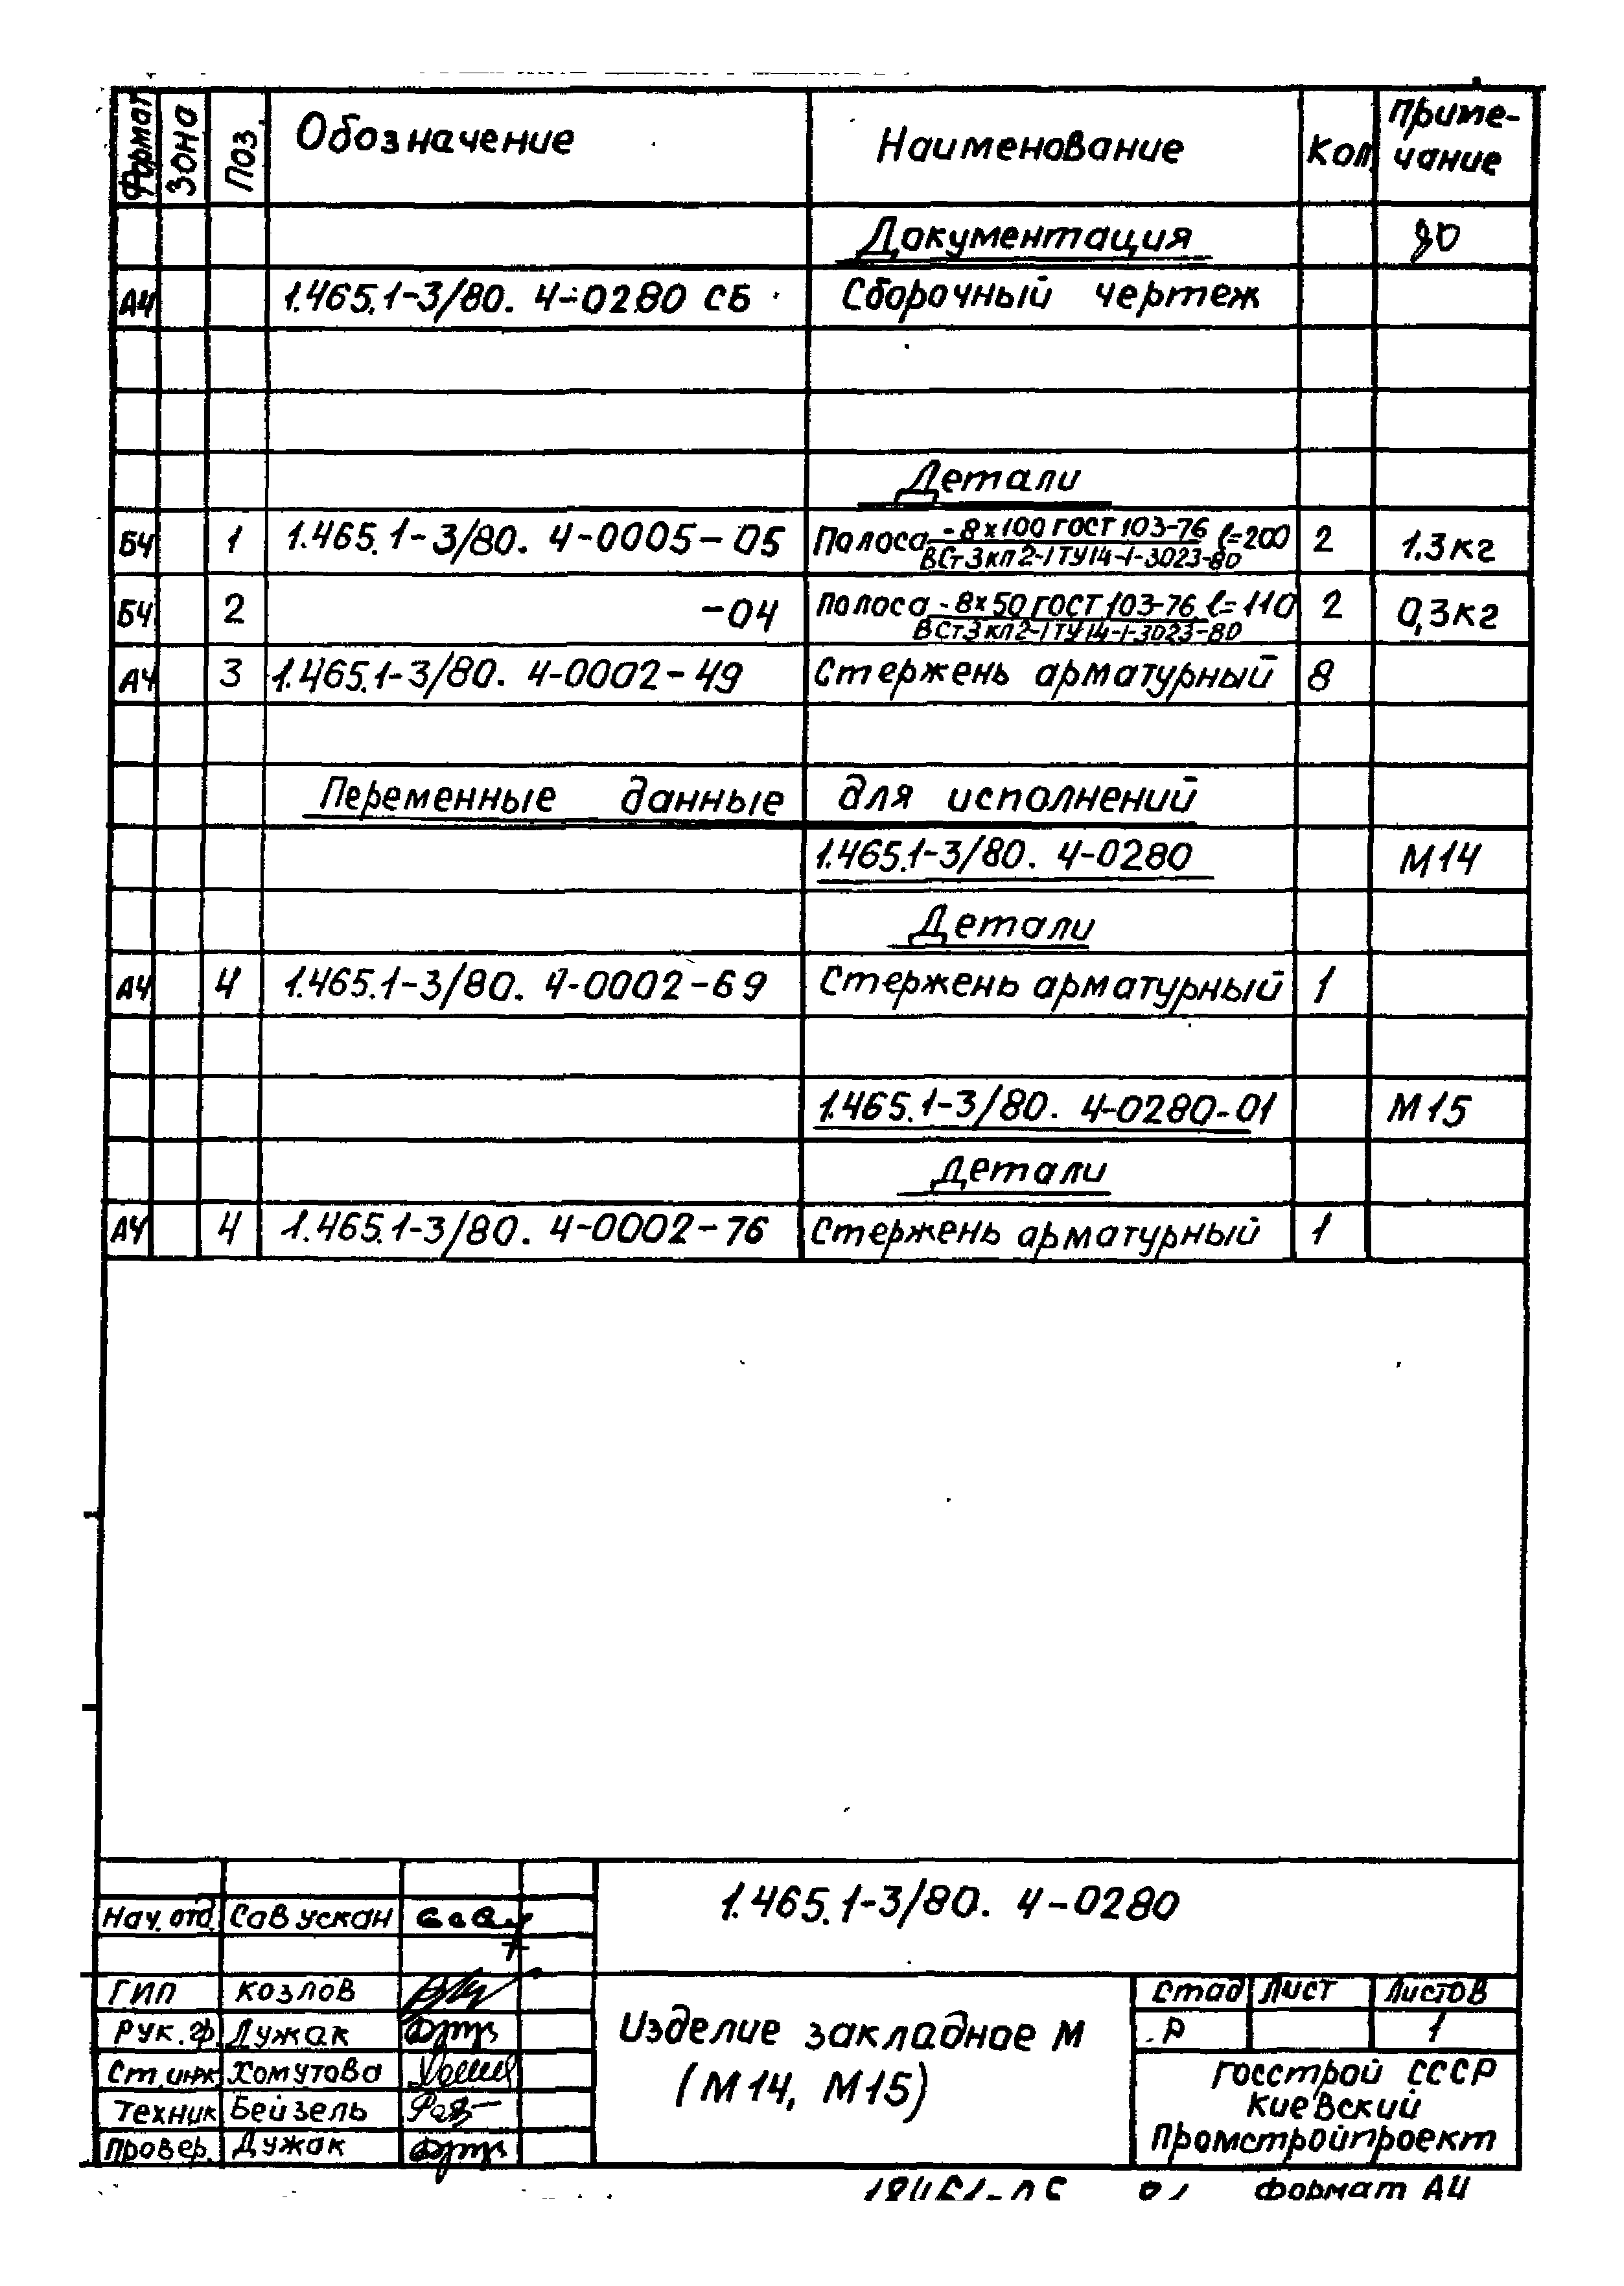 Формат Зона Поз. Обозначение Наименование Кол Приме-
чание
Документация 80
А4 1.465.1-3/80. 4-0280 СБ Сборочный чертеж
Детали
БЧ 1 1.465.1-3/80. 4-0005-05 Полоса -8х100 ГОСТ 103-76 ℓ=200 2 1.3кг
ВСт3кп2-1 ТУ14-1-3023-80
БЧ 2 -04 полоса -8х50 ГОСТ 103-76 ℓ=110 2 0,3кг
ВСт3кп2-1 ТУ14-1-3023-80
А4 3 1.465.1-3/80. 4-0002-49 Стержень арматурный 8
Переменные данные для исполнений
1.465.1-3/80. 4-0280 М14
Детали
А4 4 1.465.1-3/80. 4-0002-69 Стержень арматурный 1
1.465.1-3/80. 4-0280-01 М15
Детали
А4 4 1.465.1-3/80. 4-0002-76 Стержень арматурный 1
1.465.1-3/80. 4-0280
Нач. отд. Савускан
ГИП Козлов
Рук. гр. Дужак
Ст. инж. Хомутова
Техник Бейзель
Провер. Дужак
Изделие закладное М
(М14, М15)
Стад Лист Листов
Р 1
Госстрой СССР
Киевский
Промстройпроект
формат А4